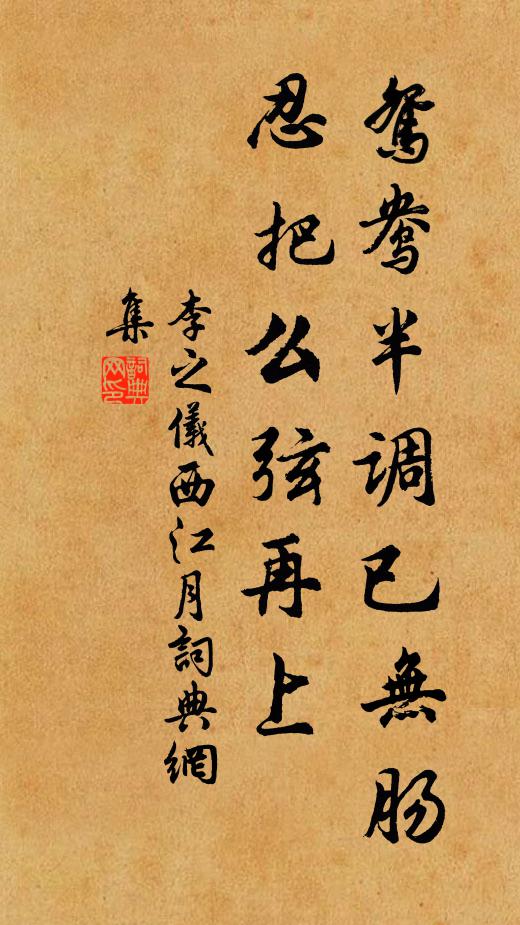 鸳鸯半调已無肠
忍把么弦再上
李之儀西江月詞典網
集
詞典
网印